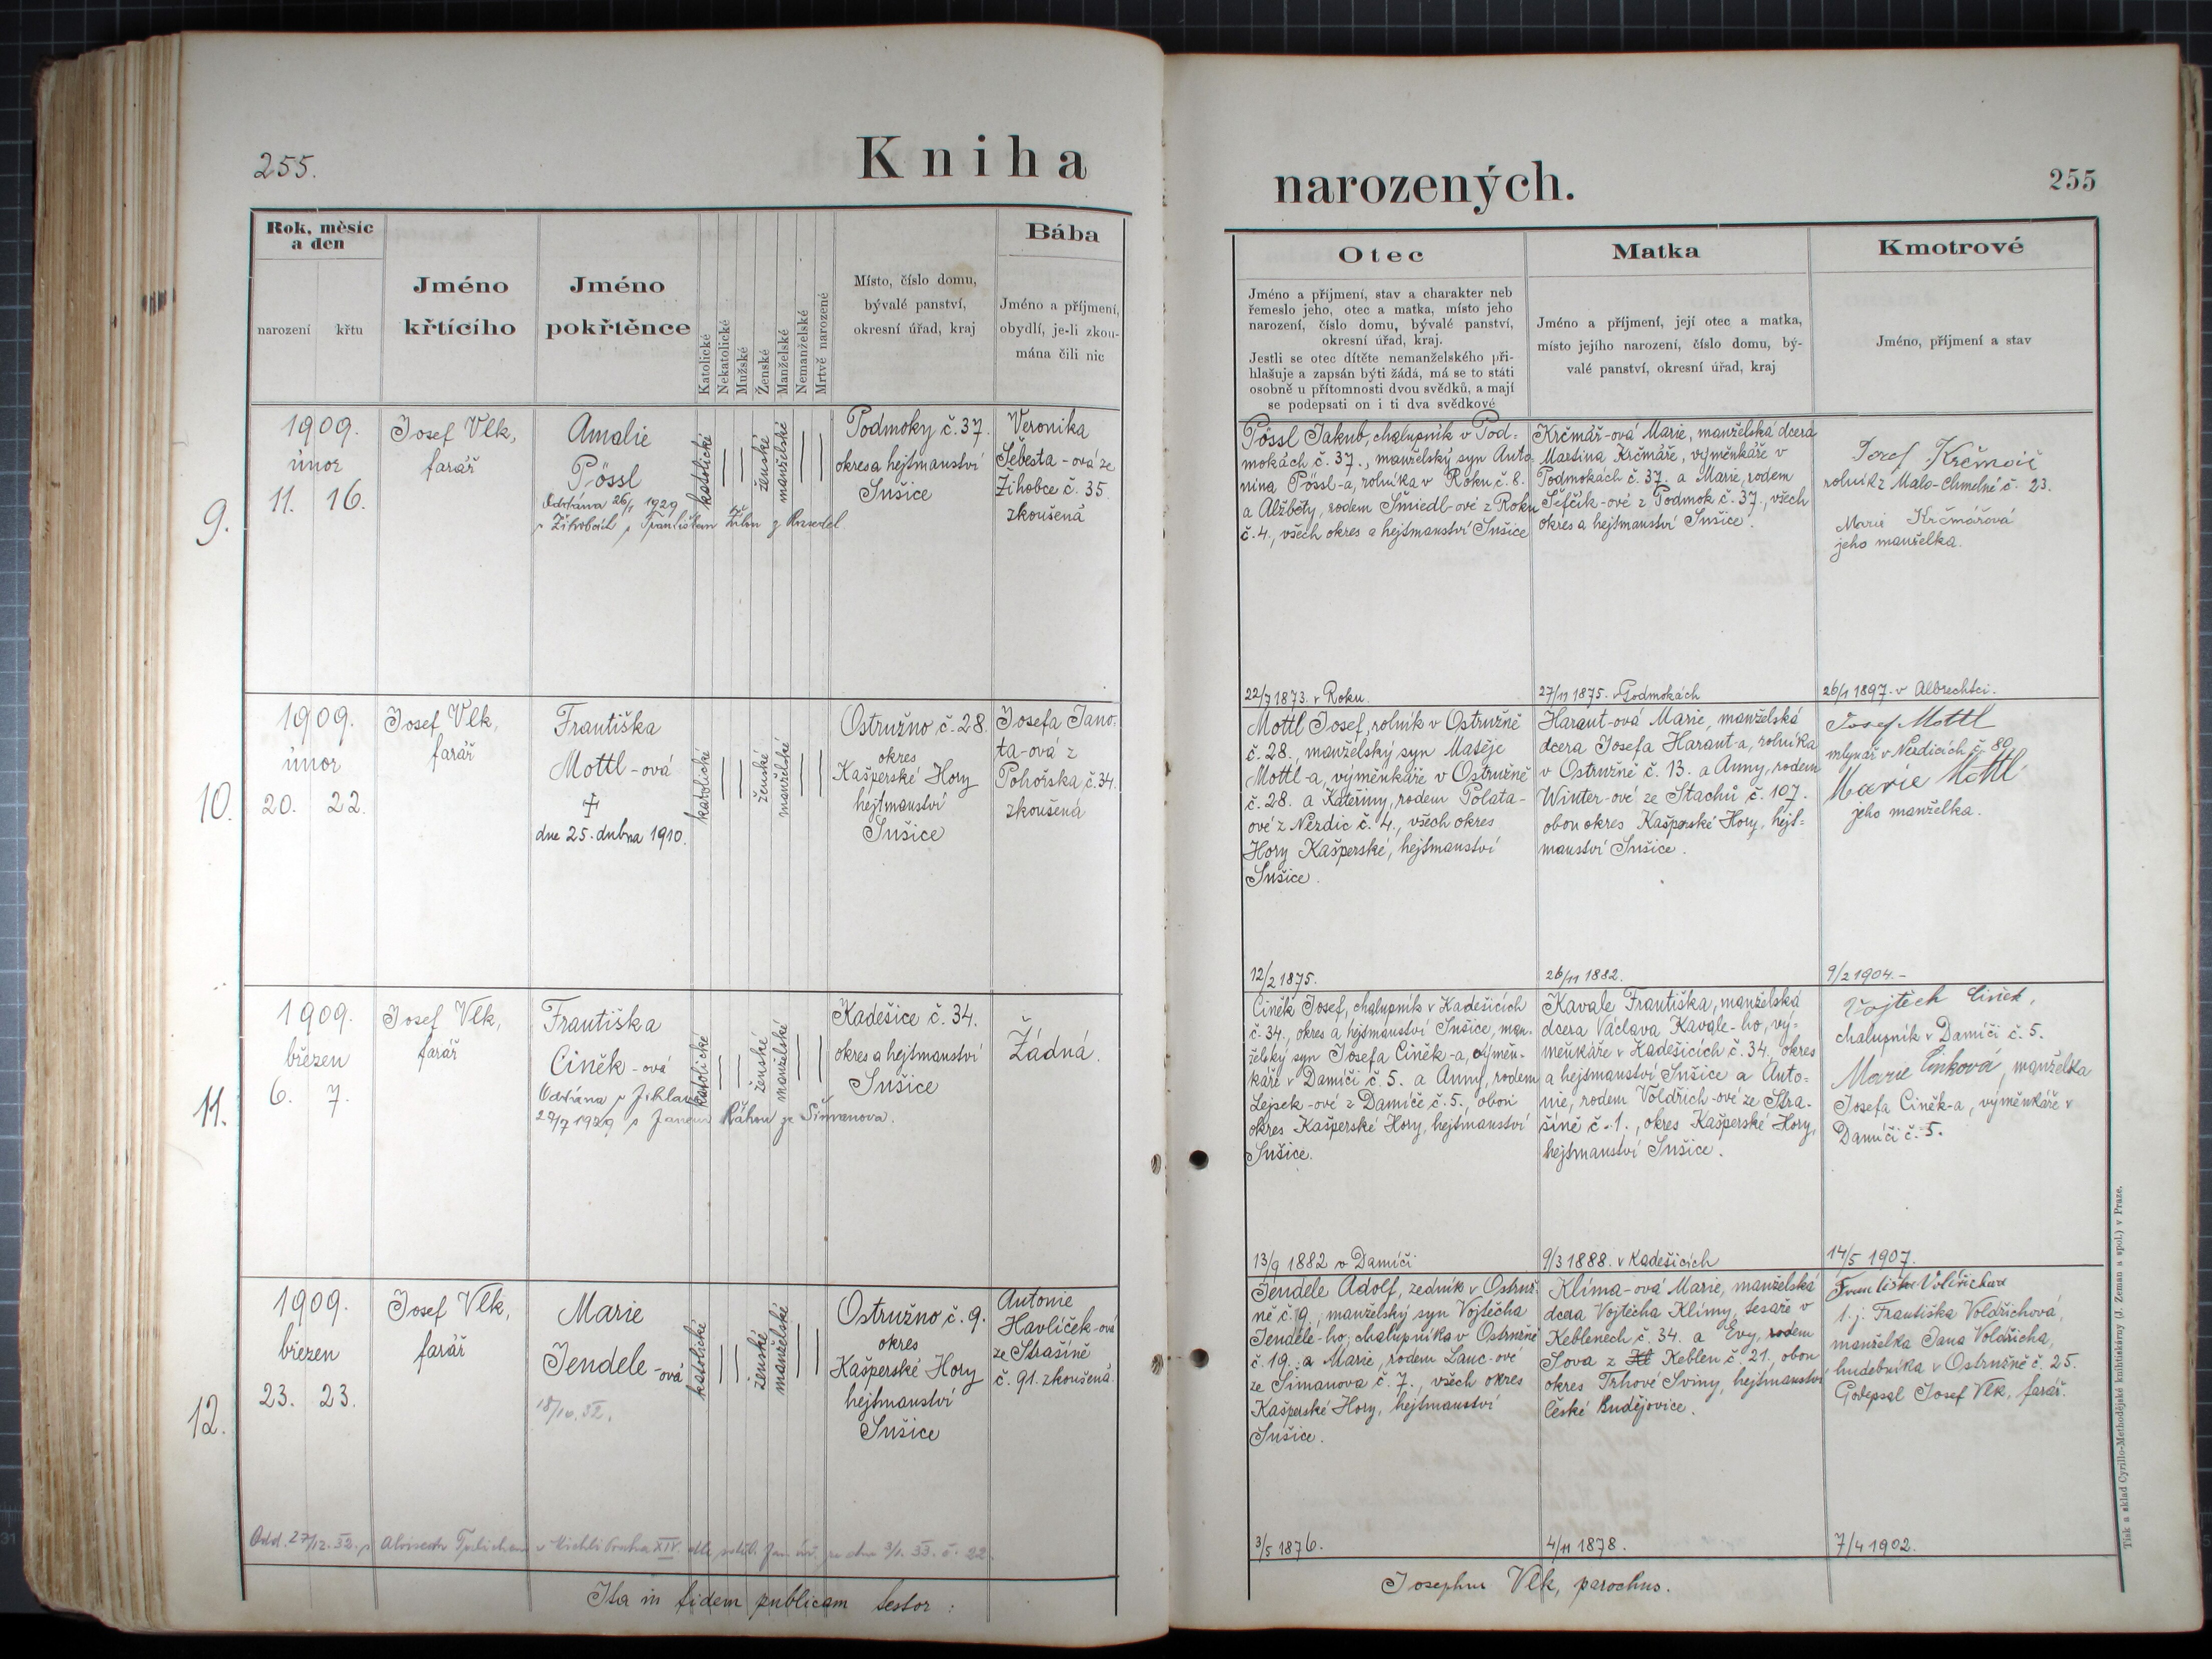 255.
Kniha
narozených.
255
Rok, měsíc
a den
narození
křtu
Jméno
křtícího
Jméno
pokřtěnce
Katolické
Nekatolické
Mužské
Ženské
Manželské
Nemanželské
Mrtvě narozené
Místo, číslo domu,
bývalé panství,
okresní úřad, kraj
Bába
Jméno a příjmení,
obydlí, je-li zkou-
mána čili nic
Otec
Jméno a příjmení, stav a charakter neb
řemeslo jeho, otec a matka, místo jeho
narození, číslo domu, bývalé panství,
okresní úřad, kraj.
Jestli se otec dítěte nemanželského při-
hlašuje a zapsán býti žádá, má se to státi
osobně u přítomnosti dvou svědků, a mají
se podepsati on i ti dva svědkové
Matka
Jméno a příjmení, její otec a matka,
místo jejího narození, číslo domu, bý-
valé panství, okresní úřad, kraj
Kmotrové
Jméno, příjmení a stav
9.
1909.
únor
11. 16.
Josef Vlk,
farář
Amalie
Pössl
Oddána 26/1 1929
v Žihobcích s Františkem
katolické
ženské
manželské
Podmoky č. 37.
okres a hejtmanství
Sušice
Veronika
Šebesta-ová ze
Žihobce č. 35.
zkoušená
Pössl Jakub, chalupník v Pod-
mokách č. 37., manželský syn Anto-
nína Pössl-a, rolníka v Roku č. 8.
a Alžběty, rodem Šmiedl-ové z Roku
č. 4., všech okres a hejtmanství Sušice
22/7 1873. v Roku.
Krčmář-ová Marie, manželská dcera
Martina Krčmáře, výměnkáře v
Podmokách č. 37. a Marie, rodem
Šefčík-ové z Podmok č. 37., všech
okres a hejtmanství Sušice.
27/11 1875. v Podmokách
Josef Krčmář
rolník z Malo-Chmelné č. 23.
Marie Krčmářová
jeho manželka.
26/1 1897. v Albrechtci.
10.
1909.
únor
20. 22.
Josef Vlk,
farář
Františka
Mottl-ová
†
dne 25. dubna 1910.
katolické
ženské
manželské
Ostružno č. 28.
okres
Kašperské Hory
hejtmanství
Sušice
Josefa Jano-
ta-ová z
Pohorska č. 34.
zkoušená
Mottl Josef, rolník v Ostružně
č. 28., manželský syn Matěje
Mottl-a, výměnkáře v Ostružně
č. 28. a Kateřiny, rodem Polata-
ové z Nezdic č. 4., všech okres
Hory Kašperské, hejtmanství
Sušice.
12/2 1875.
Haraut-ová Marie, manželská
dcera Josefa Haraut-a, rolníka
v Ostružně č. 13. a Anny, rodem
Winter-ové ze Stachů č. 107.
obou okres Kašperské Hory, hejt-
manství Sušice.
26/11 1882.
Josef Mottl
mlynář v Nezdicích č. 80.
Marie Mottl
jeho manželka.
9/2 1904.-
11.
1909.
březen
6. 7.
Josef Vlk,
farář
Františka
Ciněk-ová
Oddána v Jihlavě
29/7 1929 s Janem Ráhou ze Šimanova.
katolické
ženské
manželské
Kadešice č. 34.
okres a hejtmanství
Sušice
Žádná.
Ciněk Josef, chalupník v Kadešicích
č. 34., okres a hejtmanství Sušice, man-
želský syn Josefa Ciněk-a, výměn-
káře v Damíči č. 5. a Anny, rodem
Lejsek-ové z Damíče č. 5., obou
okres Kašperské Hory, hejtmanství
Sušice.
13/9 1882 v Damíči
Kavale Františka, manželská
dcera Václava Kavale-ho, vý-
měnkáře v Kadešicích č. 34. okres
a hejtmanství Sušice a Anto-
nie, rodem Voldřich-ové ze Stra-
šíně č. 1., okres Kašperské Hory,
hejtmanství Sušice.
9/3 1888. v Kadešicích
Vojtěch Ciněk,
chalupník v Damíči č. 5.
Marie Cinková, manželka
Josefa Ciněk-a, výměnkáře v
Damíči č. 5.
14/5 1907.
12.
1909.
březen
23. 23.
Josef Vlk,
farář
Marie
Jendele-ová
18/10. 32.
katolické
ženské
manželské
Ostružno č. 9.
okres
Kašperské Hory
hejtmanství
Sušice
Antonie
Havlíček-ová
ze Strašíně
č. 91. zkoušená.
Jendele Adolf, zedník v Ostruž-
ně č. 9., manželský syn Vojtěcha
Jendele-ho, chalupníka v Ostružně
č. 19. a Marie, rodem Lanc-ové
ze Šimanova č. 7., všech okres
Kašperské Hory, hejtmanství
Sušice.
3/5 1876.
Klíma-ová Marie, manželská
dcera Vojtěcha Klímy, tesaře v
Keblenech č. 34. a Evy, rodem
Sova z Keblen č. 21., obou
okres Trhové Sviny, hejtmanství
České Budějovice.
4/11 1878.
Františka Voldřichova
t. j. Františka Voldřichová,
manželka Jana Voldřicha,
hudebníka v Ostružně č. 25.
Podepsal Josef Vlk, farář.
7/4 1902.
Odd. 27/12. 32. s Aloisem v Michli Praha XIV. dle ze dne 3/1. 33. č. 22.
Ita in fidem publicam testor:
Josephus Vlk, parochus.
Tisk a sklad Cyrillo-Methodějské knihtiskárny (J. Zeman a spol.) v Praze.